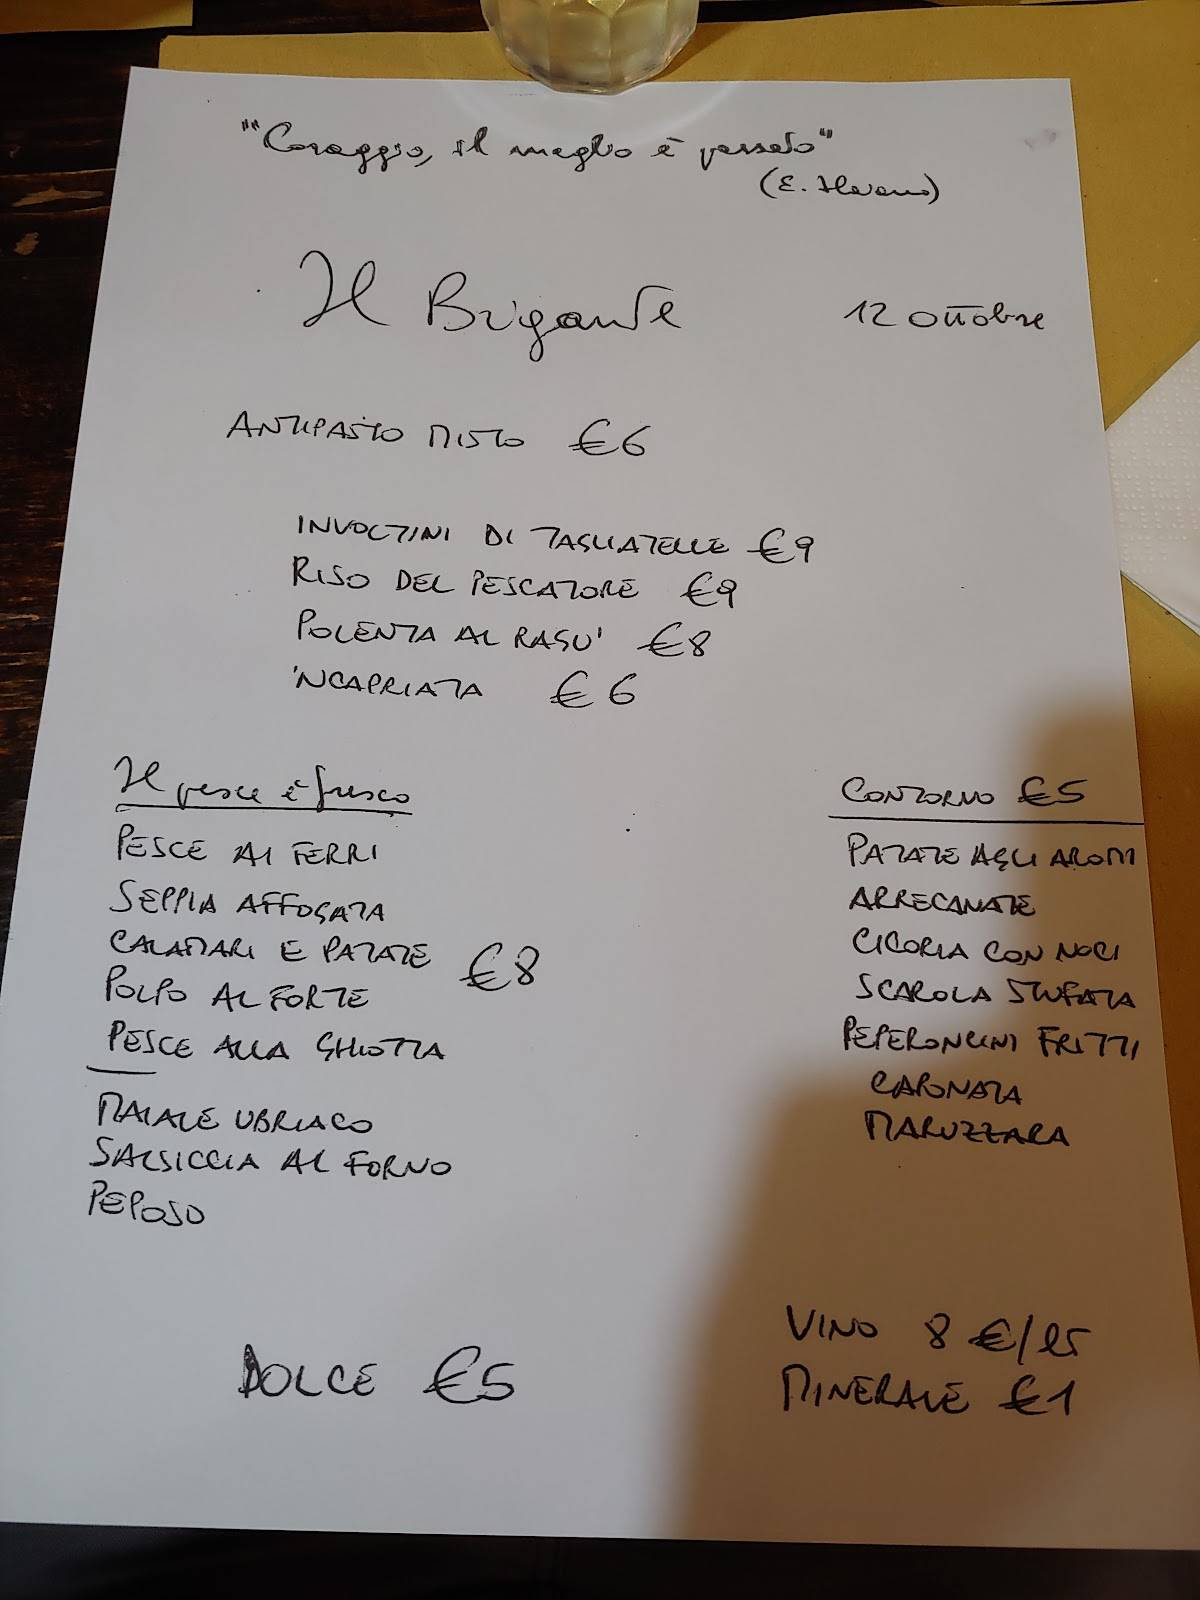 "Coraggio, il meglio è passato"
(E. Flaiano)
Il Brigante
12 ottobre
ANTIPASTO MISTO €6
INVOLTINI DI TAGLIATELLE €9
RISO DEL PESCATORE €9
POLENTA AL RAGU' €8
'NCAPRIATA €6
Il pesce è fresco
PESCE AI FERRI
SEPPIA AFFOGATA
CALAMARI E PATATE
€8
POLPO AL FORTE
PESCE ALLA GHIOTTA
MAIALE UBRIACO
SALSICCIA AL FORNO
PEPOSO
CONTORNO €5
PATATE AGLI AROMI
ARRECANATE
CICORIA CON NOCI
SCAROLA STUFATA
PEPERONCINI FRITTI
CAPONATA
MARUZZARA
DOLCE €5
VINO 8 €/lt
MINERALE €1